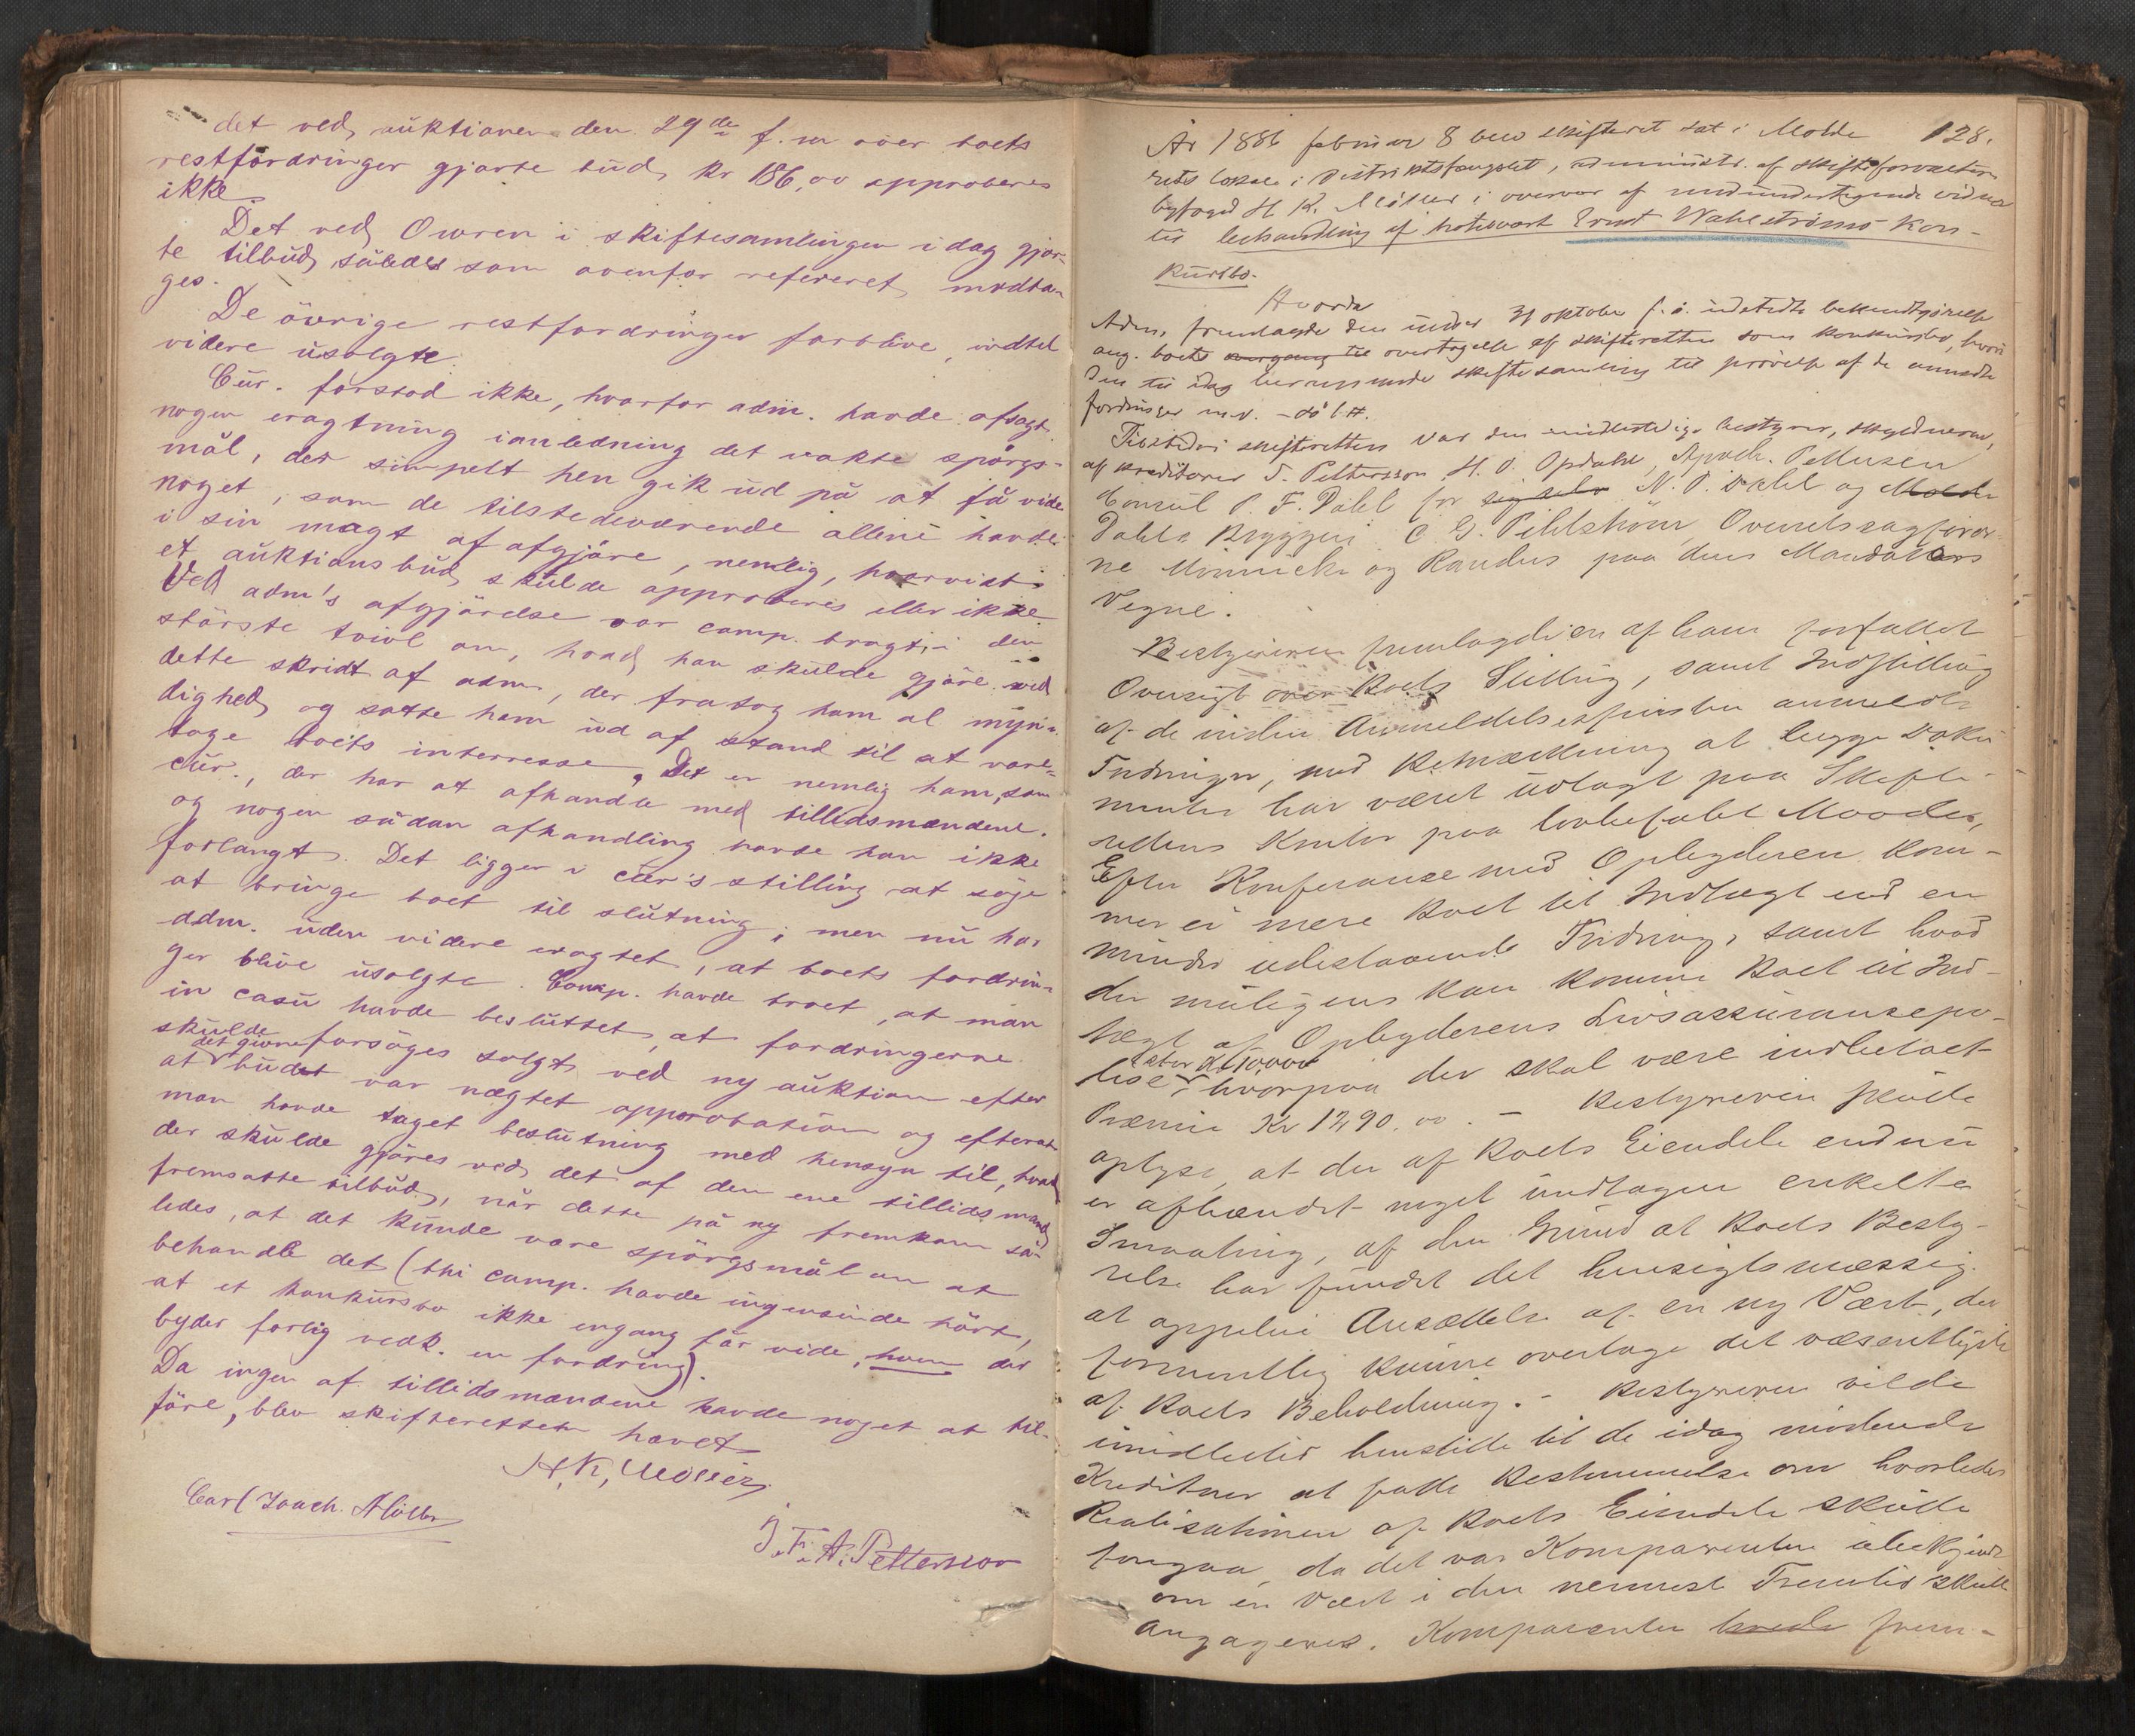 det ved auktionen den 29de f. m over boets
restfordringer gjorte bud, kr 186,00 approberes
ikke.
Det ved Owren i skiftesamlingen i dag gjor-
te tilbud således som ovenfor refereret, modta-
ges.
De øvrige restfordringer forblive, indtil
videre usolgte.
Cur. forstod ikke, hvorfor adm. havde afsagt
nogen eragtning i anledning det vakte spørgs-
mål, der simpelt hen gik ud på at få vide
noget, som de tilstedeværende allene havde
i sin magt af afgjøre, nemlig, hvorvidt
et auktionsbud skulde approberes eller ikke
Ved adm's afgjørelse var comp. bragt i den
største tvivl om, hvad han skulde gjøre ved
dette skridt af adm., der fratog ham al myn-
dighed og satte ham ud af stand til at vare-
tage boets interesse. Det er nemlig ham, som
cur., der har at afhandle med tillidsmændene.
og nogen sådan afhandling havde han ikke
forlangt. Det ligger i cur's stilling at søge
at bringe boet til slutning; men nu har
adm. uden videre eragtet, at boets fordrin-
ger blive usolgte. Comp. havde troet, at man
in casu havde besluttet, at fordringerne
skulde forsøges solgt ved ny auktion efter
at det givne budet var nægtet approbation og efterat
man havde taget beslutning med hensyn til, hvad
der skulde gjøres ved det af den ene tillidsmand
fremsatte tilbud, når dette på ny fremkom så-
ledes, at det kunde være spørgsmål om at
behandle det (thi comp. havde ingensinde hørt,
at et konkursbo ikke engang får vide, hvem der
byder forlig vedk. en fordring).
Da ingen af tillidsmændene havde noget at til-
føre, blev skifteretten hævet
H. K. Møller
Carl Joach. Møller
J. F. A. Pettersson
128.
År 1886 februar 8 blev skifteret sat i Molde
rets lokale i distriktsfængslet, administr. af skifteforvalteren
byfoged H. K. Møller i overvær af medundertegnede vidner
til behandling af hotelvært Ernst Wahlstrøms kon-
kursbo.
Hvorda
Adm. fremlagde den under 31 oktober f. å. udstedte bekendtgjørelse
ang. boets overgang til overtagelse af skifteretten som konkursbo, hvori
den til idag berammede skiftesamling til prøvelse af de anmeldte
fordringer m. v.
Tilstede i skifteretten var den midlertidige bestyrer, skyldneren,
af kreditorer Pettersson H. O. Opdahl, Apoth.
Consul P. F. Dahl for sig selv N. P. Dahl og Molde
Dahls Bryggeri C. G. Pihlstrøm, Overretssagfører-
ne Minnicke og Randers paa deres Mandanters
Vegne.
Bestyreren fremlagde en af ham forfattet
Oversigt over Boets Stilling, samt Indstilling
af de inden Anmeldelsesfristen anmeldte
Fordringer, med Bemærkning at begge Doku-
menter har været udlagt paa Skifte-
rettens Kontor paa lovbefalet Maade,
Efter Konferanse med Opbyderen kom-
mer ei mere Boet til Indtægt end en
mindre udestaaende Fordring, samt hvad
der muligens kan komme Boet til Ind-
tægt af Opbyderens Livsassurancepo-
lise stor Kr 10,000 hvorpaa der skal være indbetalt
Præmie Kr 1290.00. – Bestyreren skulde
oplyse, at der af Boets Eiendele endnu
er afhændet noget undtagen enkelte
Smaating, af den Grund at Boets Besty-
relse har fundet det hensigtsmæssig
at oppebie Ansættelse af en ny Vært, der
formentlig kunne overtage det væsentligste
af Boets Beholdning. – Bestyreren vilde
imidlertid henstille til de idag mødende
Kreditorer at fatte Bestemmelse om hvorledes
Realisationen af Boets Eiendele skulde
foregaa, da det var Komparenten ubekjendt
om en Vært i den nermeste Fremtid skulde
angageres. Komparenten havde frem-